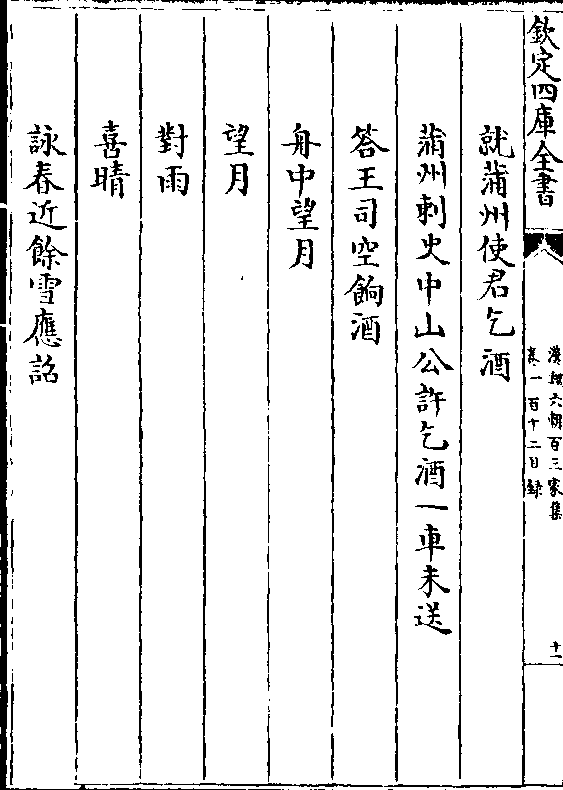 欽定四庫全書
漢魏六朝百三家集
卷一百十二目録
十一
就蒲州使君乞酒
蒲州刺史中山公許乞酒一車未送
答王司空餉酒
舟中望月
望月
對雨
喜晴
詠春近餘雪應詔